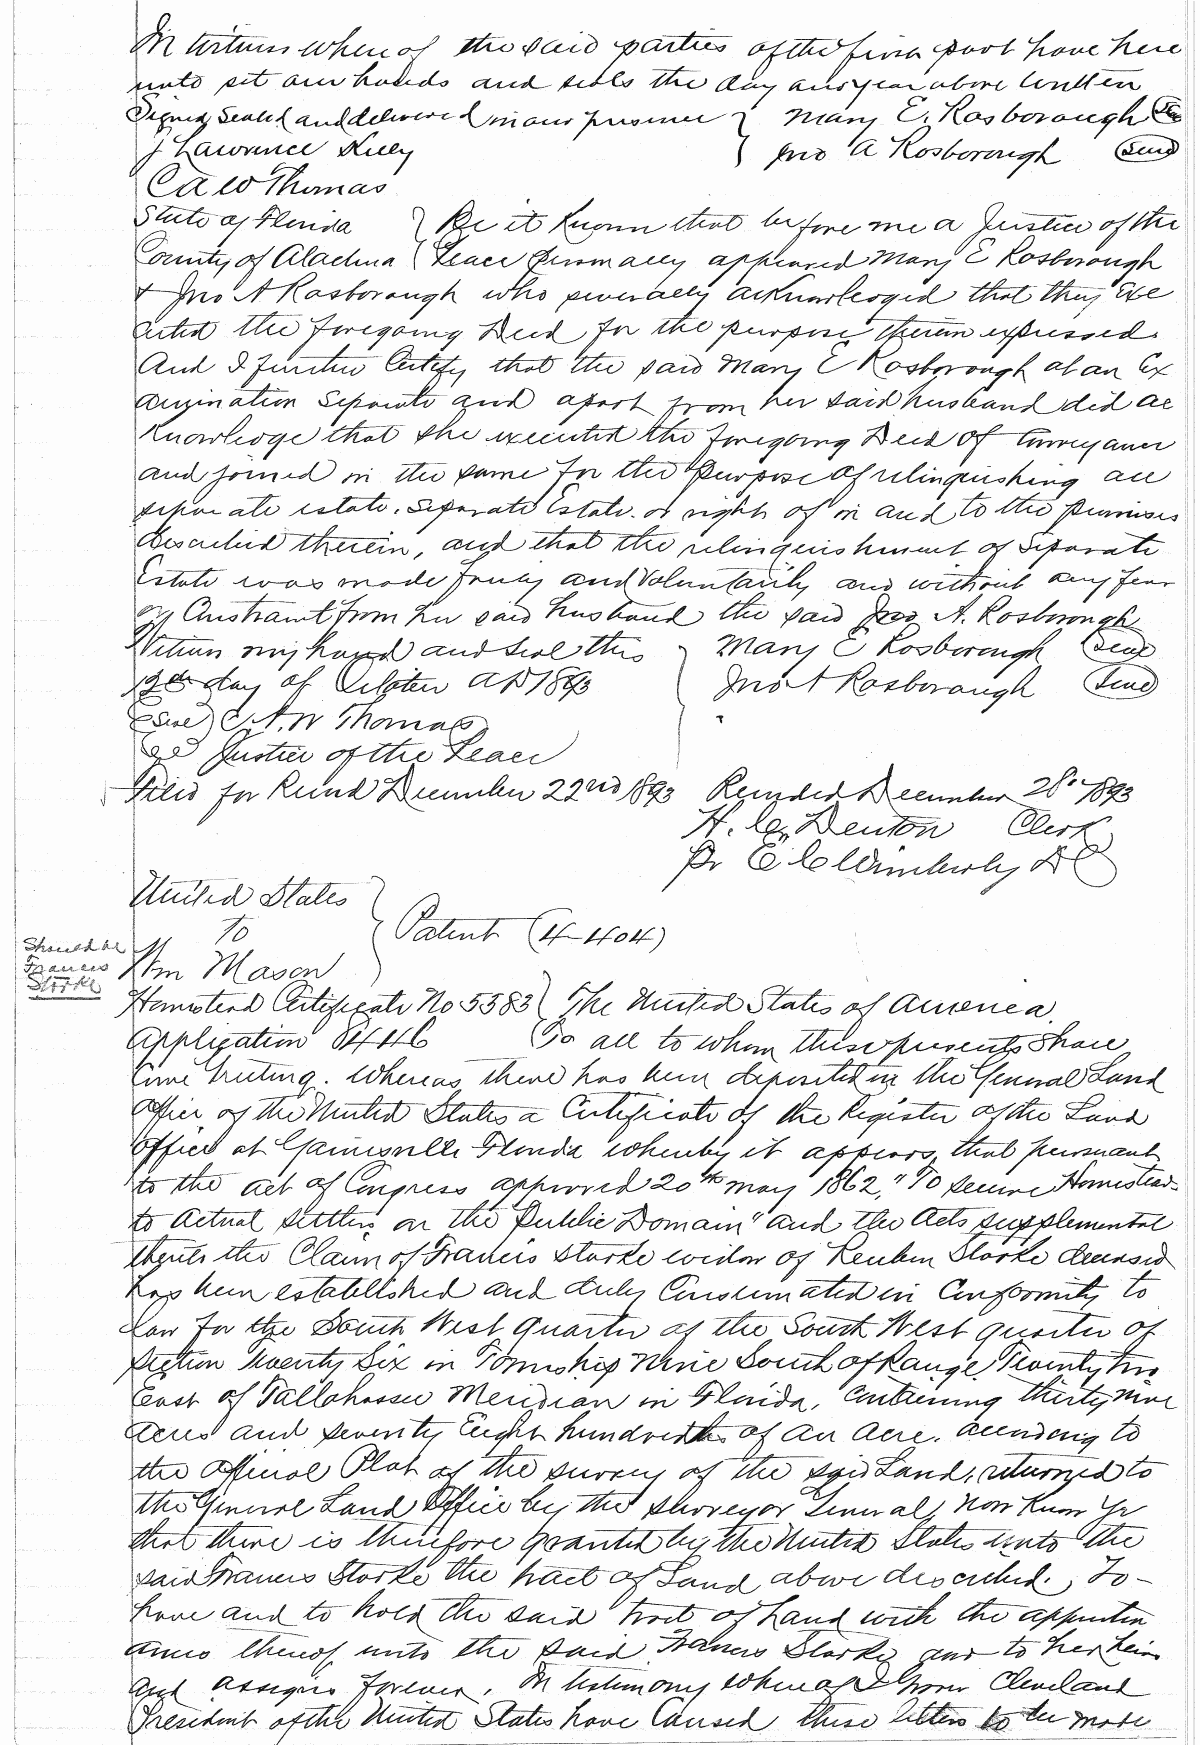 In witness whereof the said parties of the first part have here
unto set our hands and seals the day and year above written
Signed, Sealed and delivered in our presence } Mary E. Rosborough (Seal)
J Lawrence Kelly } Jno A Rosborough (Seal)
C A W Thomas
State of Florida } Be it Known that before me a Justice of the
County of Alachua } Peace personally appeared Mary E Rosborough
& Jno A Rosborough who severally acknowledged that they exe
cuted the foregoing Deed for the purpose therein expressed.
And I further Certify that the said Mary E Rosborough at an Ex
amination Separate and apart from her said husband did ac
knowledge that she executed the foregoing Deed of Conveyance
and joined in the same for the purpose of relinquishing all
separate estate. Separate Estate. or right of in and to the premises
described therein, and that the relinquishment of Separate
Estate was made freely and Voluntarily and without any fear
or Constraint from her said husband the said Jno A. Rosborough
Witness my hand and seal this } Mary E Rosborough (Seal)
day of October AD 1893 } Jno A Rosborough (Seal)
(Seal) C. A. W Thomas
Justice of the Peace
Filed for Record December 22nd 1893 Recorded December 28" 1893
H. C. Denton Clerk
Pr E C Wimberly D C
United States
To } Patent (4-404)
Should be
Francis
Storke
Wm Mason
Homestead Certificate No 5383 } The United States of America
Application 8446 To all to whom these presents Shall
Come Greeting. Whereas there has been deposited in the General Land
Office of the United States a Certificate of the Register of the Land
Office at Gainesville Florida whereby it appears that pursuant
to the act of Congress approved 20th May 1862, "To secure Homesteads
to Actual settlers on the Public Domain" and the Acts supplemental
thereto the Claim of Francis Storke widow of Reuben Storke deceased
has been established and duly Consumated in Conformity to
Law for the South West quarter of the South West quarter of
Section Twenty Six in Township Nine South of Range Twenty two
East of Tallahassee Meridian in Florida, Containing thirty nine
Acres and seventy Eight hundredths of an Acre. according to
the Official Plat of the survey of the said Land, returned to
the General Land Office by the Surveyor General, Now Know Ye
that there is therefore granted by the United States unto the
said Francis Storke the tract of Land above described. To-
have and to hold the said tract of Land with the appurten
ances thereof unto the said Francis Storke and to her heirs
and assigns forever. In testimony whereof I Grover Cleveland
President of the United States have Caused these letters to be made